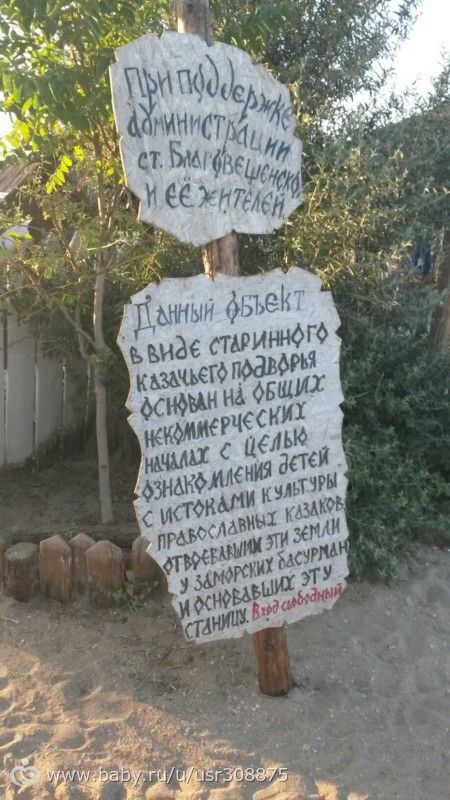 При поддержке
администрации
ст. Благовещенской
и её жителей
Данный объект
в виде старинного
казачьего подворья
основан на общих
некоммерческих
началах с целью
ознакомления детей
с истоками культуры
православных казаков,
отвоевавших эти земли
у заморских басурман
и основавших эту
станицу. Вход свободный
www.baby.ru/u/usr308875